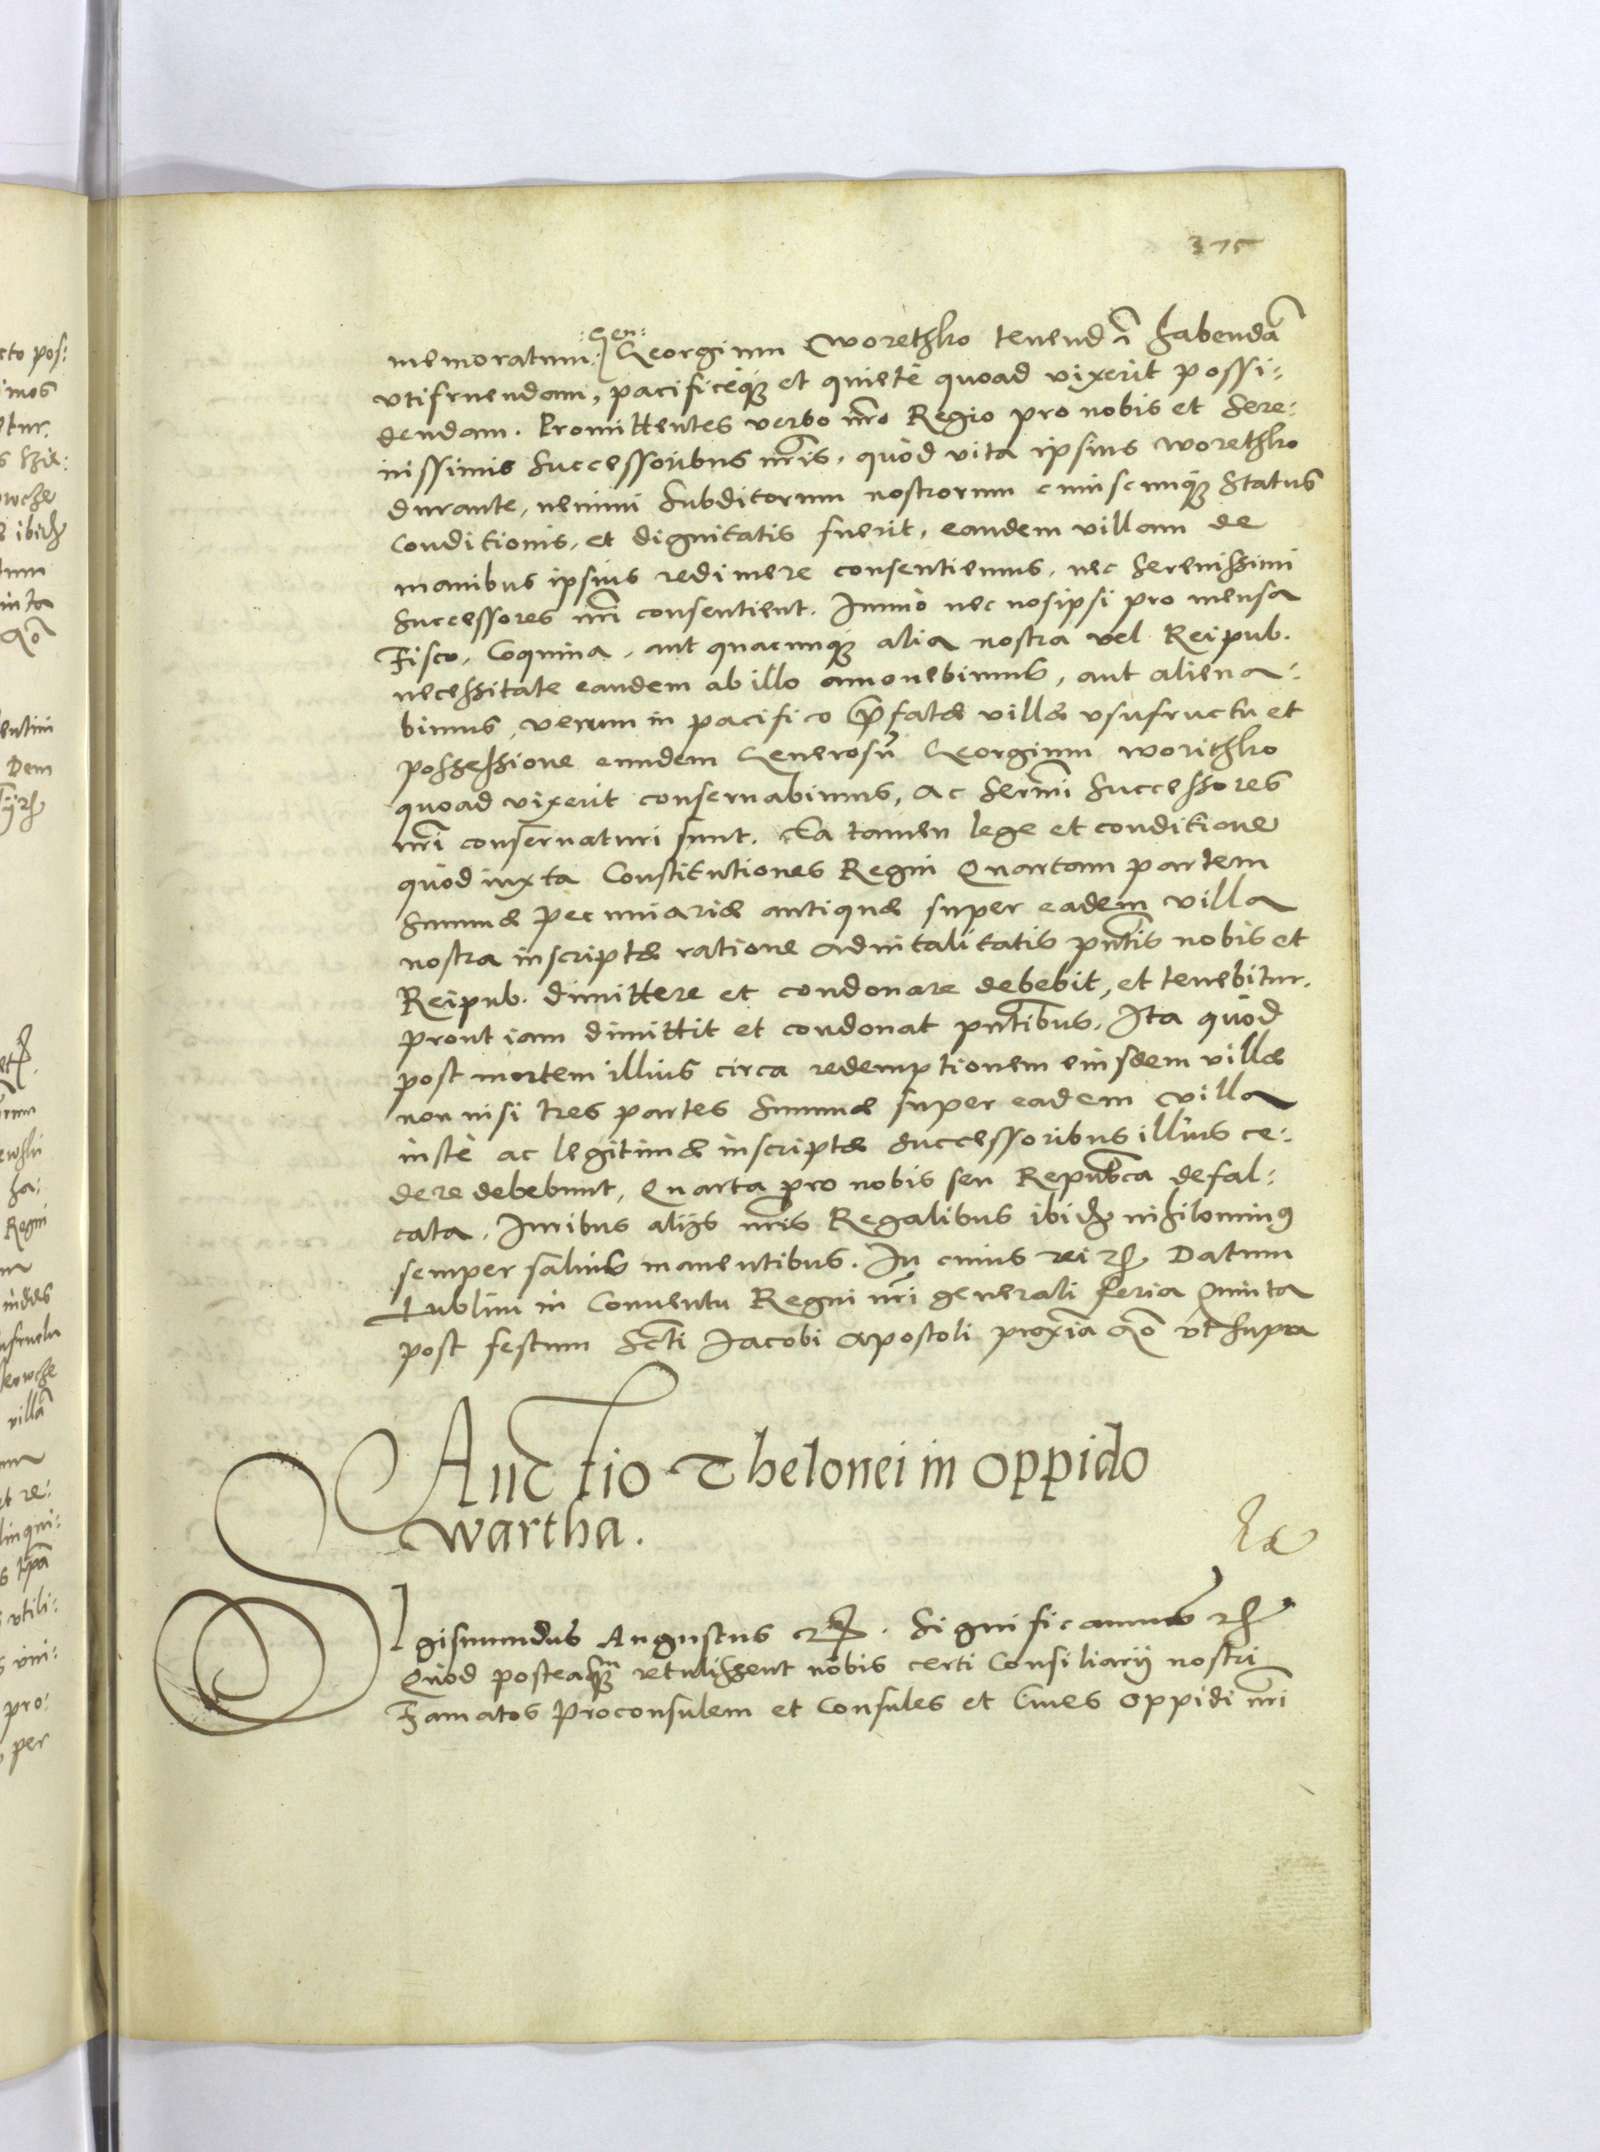 375
memoratum :Gen: Georgium Worethko tenendã habendã
vtifruendam, pacificeq̃ et quietè quoad vixerit possi:
dendam. Promittentes verbo nro Regio pro nobis et Sere:
nissimis Successoribus nris, quòd vita ipsius Worethko
durante, nemini Subditorum nostrorum cuiuscunq̃ Status
Conditionis, et dignitatis fuerit, eandem villam de
manibus ipsius redimere consentiemus, nec Serenissimi
Successores nri consentient. Immò nec nosipsi pro mensa
Fisco, Coquina, aut quacunq̃ alia nostra vel Reipub.
necessitate eandem ab illo amouebimus, aut aliena:
bimus, verum in pacifico p̃fatæ villæ vsufructu et
possessione eundem Generosũ Georgium Worithko
quoad vixerit conseruabimus, ac Sermi Successores
nri conseruaturi sunt. Ea tamen lege et conditione
quòd iuxta Constitutiones Regni Quartam partem
Summæ pecuniariæ antiquæ super eadem villa
nostra inscriptæ ratione aduitalitatis pntis nobis et
Reipub. dimittere et condonare debebit, et tenebitur.
prout iam dimittit et condonat pntibus, Ita quòd
post mortem illius circa redemptionem eiusdem villæ
non nisi tres partes Summæ super eadem villa
iustè ac legitimæ inscriptæ Successoribus illius ce:
dere debebunt, Quarta pro nobis seu Repubca defal:
cata, Iuribus alijs nris Regalibus ibid. nihilominꝯ
semper saluis manentibus. In cuius rei rc̃. Datum
Lublini in Conuentu Regni nri generali feria Quinta
post festum Scti Iacobi Apostoli proxĩa Aõ vt supra
Auctio Thelonei in Oppido
Wartha.
SIgismundus Augustus rc̃. Significamus rc̃
Quòd posteaq̃m retulissent nobis certi Consiliarij nostri
Famatos Proconsulem et Consules et Ciues Oppidi nri